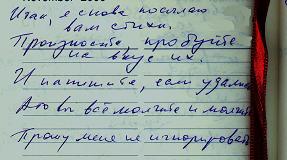 Итак, я снова посылаю
вам стихи.
Произносите, пробуйте
на вкус их.
И пишите, если удалис
А то вы всё молчите и молчите
Прошу меня не игнорироват